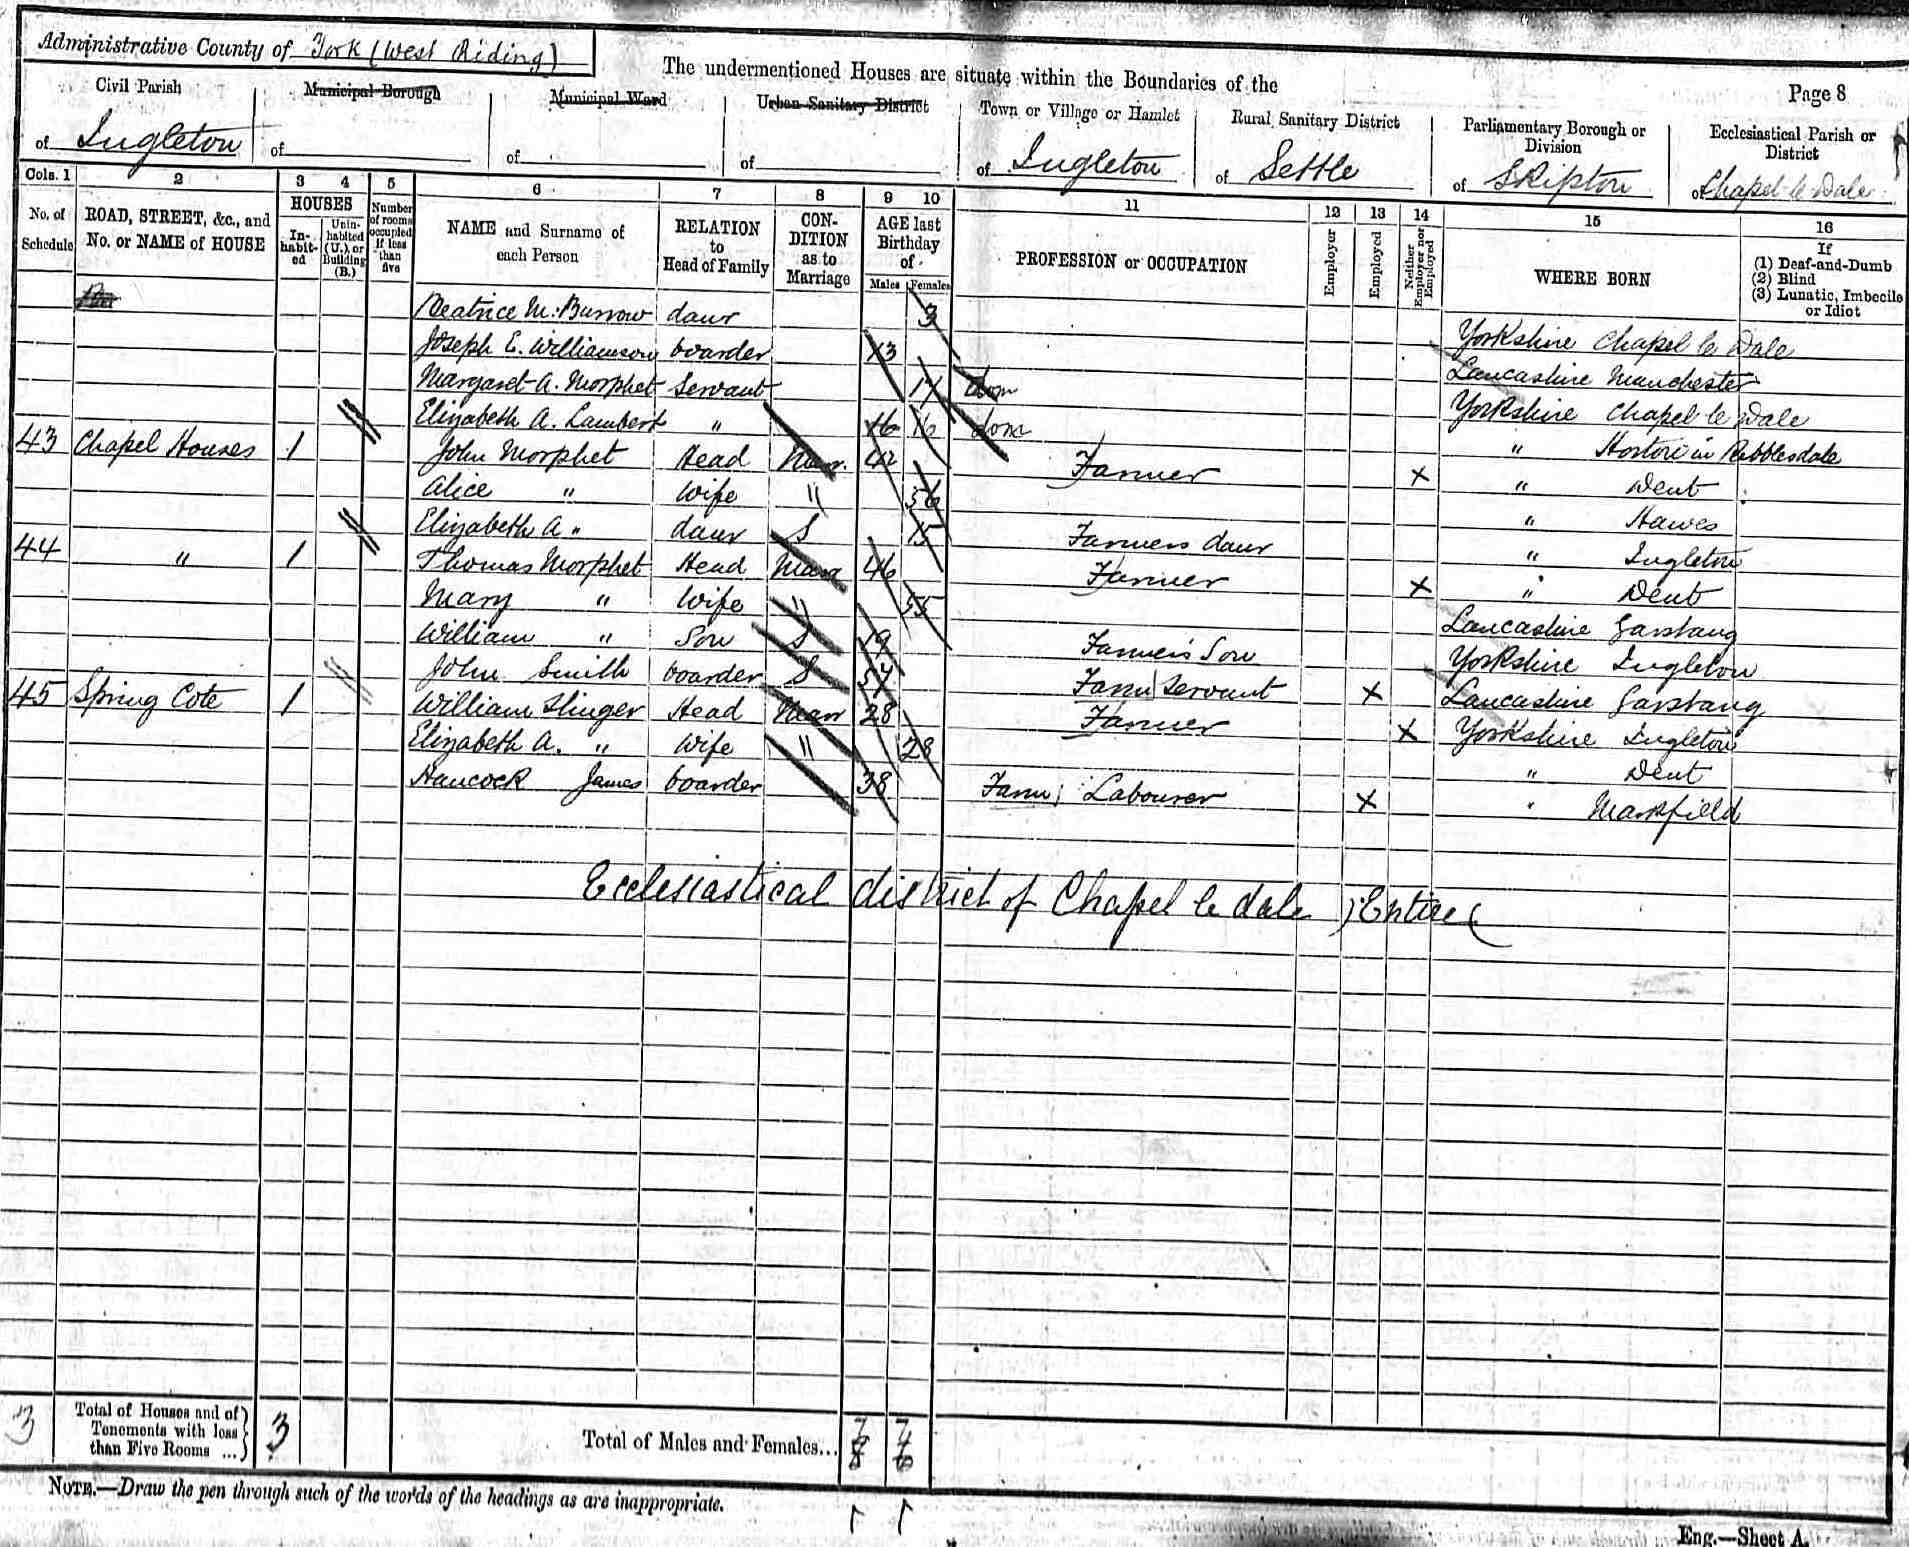 Administrative County of York (West Riding)
The undermentioned Houses are situate within the Boundaries of the
Page 8
Civil Parish
of Ingleton
Municipal Borough
of
Municipal Ward
of
Urban Sanitary District
of
Town or Village or Hamlet
of Ingleton
Rural Sanitary District
of Settle
Parliamentary Borough or Division
of Skipton
Ecclesiastical Parish or District
of Chapel le Dale
Cols. 1 2 3 4 5 6 7 8 9 10 11 12 13 14 15 16
No. of Schedule
ROAD, STREET, &c., and No. or NAME of HOUSE
HOUSES
In-habit-ed
Unin-habited (U.), or Building (B.)
Number of rooms occupied if less than five
NAME and Surname of each Person
RELATION to Head of Family
CON-DITION as to Marriage
AGE last Birthday of
Males Females
PROFESSION or OCCUPATION
Employer
Employed
Neither Employer nor Employed
WHERE BORN
If
(1) Deaf-and-Dumb
(2) Blind
(3) Lunatic, Imbecile or Idiot
Beatrice M. Burrow daur 3 Yorkshire Chapel le Dale
Joseph E. Williamson boarder 13 Lancashire Manchester
Margaret A. Morphet Servant 17 dom Yorkshire Chapel le Dale
Elizabeth A. Lambert " 16 16 dom " Horton in Ribblesdale
43 Chapel Houses 1 John Morphet Head Marr. 42 Farmer X " Dent
Alice " Wife " 56 " Hawes
Elizabeth A " daur S 15 Farmers daur " Ingleton
44 " 1 Thomas Morphet Head Marr 46 Farmer X " Dent
Mary " Wife " 55 Lancashire Garstang
William " Son S 19 Farmer's Son Yorkshire Ingleton
John Smith boarder S 57 Farm Servant X Lancashire Garstang
45 Spring Cote 1 William Slinger Head Marr 28 Farmer X Yorkshire Ingleton
Elizabeth A. " Wife " 28 " Dent
Hancock James boarder 38 Farm Labourer X " Markfield
Ecclesiastical district of Chapel le dale (Entire)
3 Total of Houses and of Tenements with less than Five Rooms ... 3
Total of Males and Females... 7 7
8 6
NOTE.—Draw the pen through such of the words of the headings as are inappropriate.
Eng.—Sheet A.